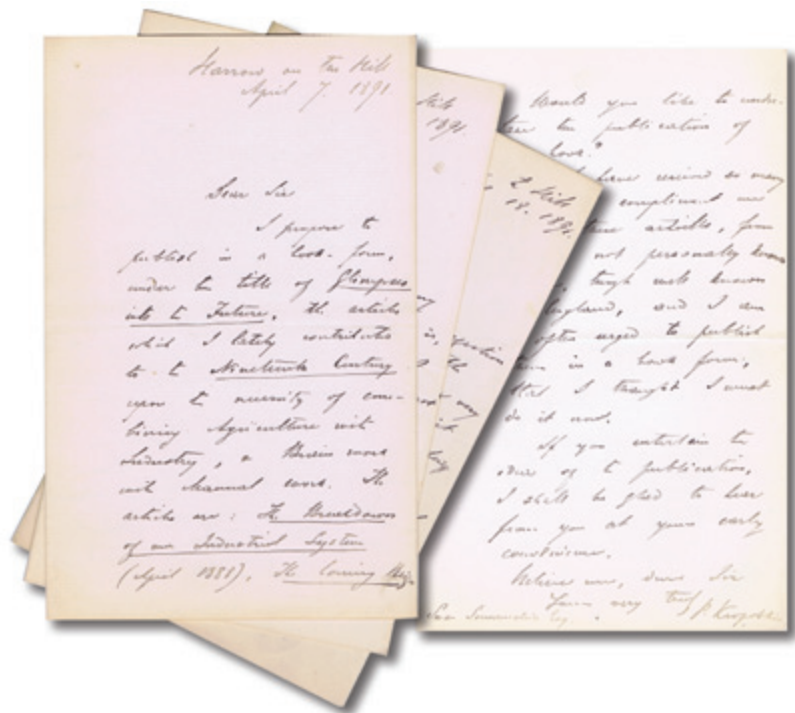 Harrow on the Hill
April 7. 1891.
Dear Sir
I propose to
publish in a book-form,
under the title of Glimpses
into t Future, the articles
which I lately contributed
to t Nineteenth Century
upon t necessity of com-
bining Agriculture with
Industry, & Brain work
with Manual work. The
articles are: The Breakdown
of our Industrial System
(April 1888), The Coming Reign
Hill
1891.
Hill
18. 1891.
Would you like to under-
take the publication of
book?
have received so many
compliment me
these articles, from
not personally known
though well known
England, and I am
often urged to publish
them in a book form,
that I thought I must
do it now.
If you entertain the
idea of t publication,
I shall be glad to hear
from you at your early
convenience.
Believe me, dear Sir
Yours very truly
P. Kropotkin
Swan Sonnenschein Esq